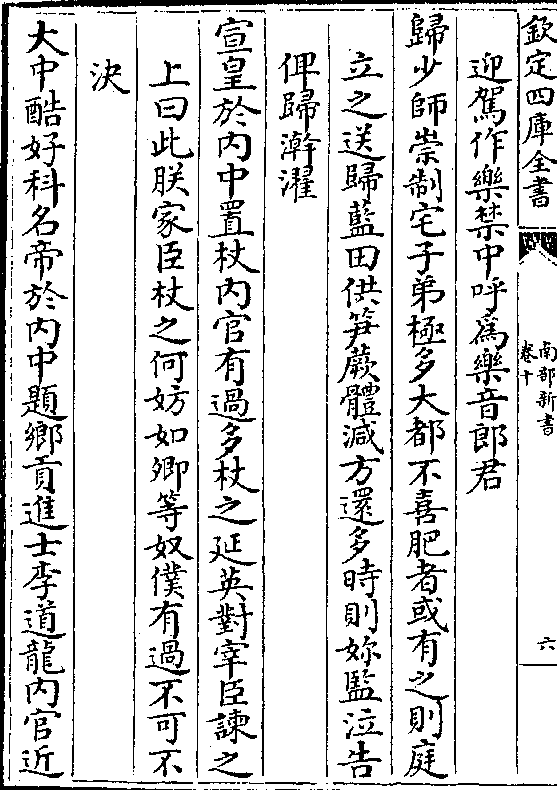 欽定四庫全書
南部新書
卷十
六
迎駕作樂禁中呼爲樂音郎君
歸少師崇制宅子弟極多大都不喜肥者或有之則庭
立之送歸藍田供笋蕨體減方還多時則妳監泣告
俾歸澣濯
宣皇於内中置杖内官有過多杖之延英對宰臣諫之
上曰此朕家臣杖之何妨如卿等奴僕有過不可不
決
大中酷好科名帝於内中題鄉貢進士李道龍内官近